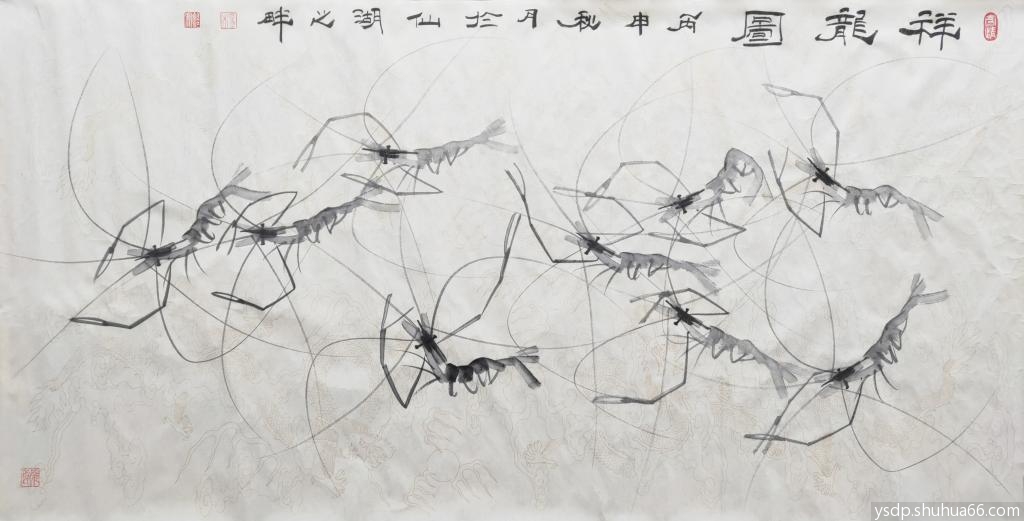 祥龍圖 丙申秋月於仙湖之畔
ysdp.shuhua66.com